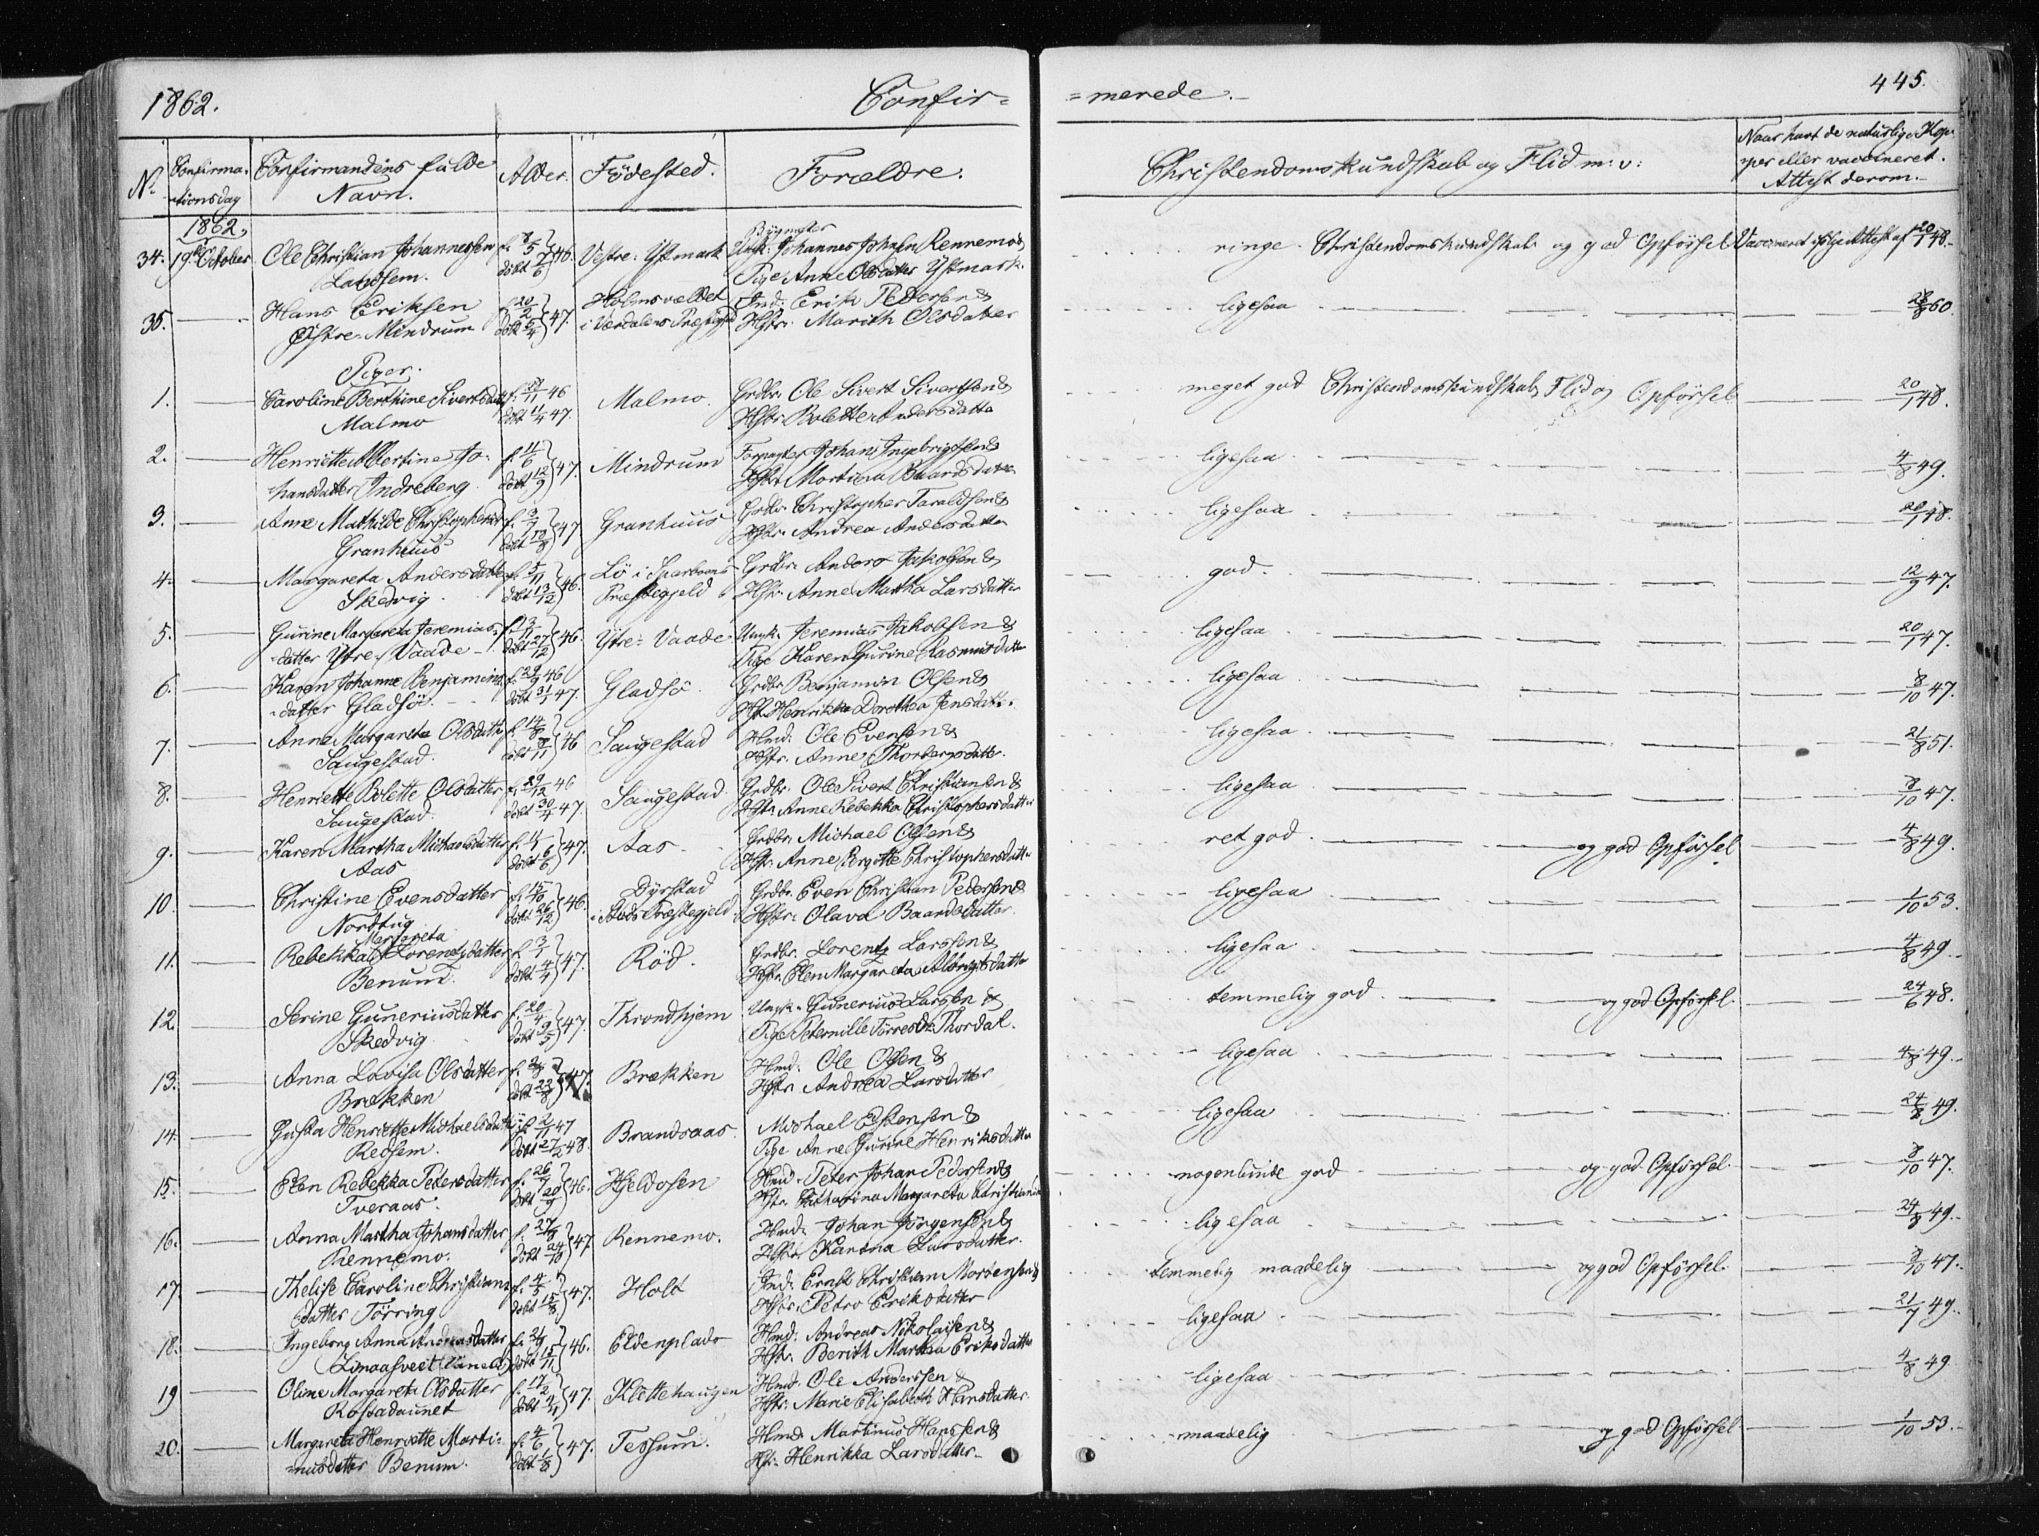 1862. Confir= =merede. 445.
No Confirma-tionsdag Confirmandens fulde Navn. Alder. Födested. Forældre. Christendomskundskab og Flid m: v: Naar havt de naturlige Kopper eller vaccineret. Attest derom.
1862,
34. 19de October Ole Christian Johannessen f. 7/5 döbt 7/6 46. Vestre: Ystmark Ungk. Johannes Johnsen Rennemo & ringe Christendomskundskab og god Opförsel Vaccineret ifölge Attest af 20/1 48.
Landsem. Pige Anne Olsdatter Ystmark.
35. Hans Eriksen f. 20/2 döbt 5/4 47. Holmsveldet Ind: Erik Pedersen & ligesaa 60.
Östre: Mindrum i Værdalens Præstgjd Hstr. Marith Olsdatter
Piger.
1. Caroline Berthine Sivertsdtr 46 Malmo. Grdbr. Ole Sivert Sivertsen & meget god Christendomskundskab, Flid og Opförsel 20/1 48.
Malmo döbt 47. Hstr. Bolette Andersdatter
2. Henriette Albertine Jo- f. 4/6 döbt 12/9 47. Mindrum Forpagter Johan Ingebrigtsen & ligesaa 4/8 49.
hansdatter Indreberg. Hstr. Martina Baardsdatter
3. Anne Mathilde Christophersdr f. 3/7 döbt 10/8 47 Granhuus Grdbr. Christopher Taraldsen & ligesaa 20/1 48.
Granhuus Hstr. Andrea Andersdatter
4. Margareta Andersdatter f. 5/11 döbt 13/12 46. Lö i Sparboens Grdbr. Anders Jakobsen & god 12/9 47.
Skedvig Præstegjeld Hstr. Anne Martha Larsdatter
5. Gurine Margareta Jeremias- döbt 27/12 46. Ytre: Vaade Ungk. Jeremias Jakobsen & ligesaa 20/1 47.
datter Ytre: Vaade Pige Karen Gurine Rasmusdatter
6. Karen Johanne Benjamins- 46 Gladsö. Grdbr. Benjamin Olsen & ligesaa 8/10 47.
datter Gladsöe. döbt 31/1 47. Hstr. Henrikka Dorothea Jensdatter.
7. Anne Margareta Olsdatter f. 14/8 46 Saugestad Hmd: Ole Evensen & ligesaa 21/8 51.
Saugestad. Hstr. Anne Thorbergsdatter.
8. Henriette Bolette Olsdatter f. 29/12 46 Saugestad Grdbr. Ole Sivert Christiansen & ligesaa 8/10 47.
Saugestad. döbt 30/4 47. Hstr. Anne Rebekka Christophersdatter
9. Karen Martha Michaelsdatter döbt 6/6 47. Aas Grdbr. Michael Olsen & ret god og god Opförsel 4/8 49.
Aas Hstr. Anne Bergotte Christophersdatter
10. Christine Evensdatter f. 15/10 döbt 26/12 46. Dyrstad Grdbr. Even Christian Pedersen & ligesaa 1/10 53.
Nordtug i Stods Præstegjeld Hstr. Olava Baardsdatter.
Margareta
11. Rebekka Lorentzdatter f. 3/1 döbt 4/4 47. Röd. Grdbr. Lorentz Larssen & ligesaa 4/8 49.
Benum. Hstr. Elen Margareta Albrigtsdatter
12 Serine Guneriusdatter f. 20/4 döbt 9/5 47. Throndhjem Ungk. Gunerius Larssen & temmelig god og god Opförsel. 24/6 48.
Skedvig. Pige Peternille Torresdr Thordal.
13. Anna Lovisa Olsdatter 47. Brækken Hmd: Ole Olsen & ligesaa 4/8 49.
Brækken Hstr. Andrea Larsdatter
14. Gusta Henriette Michaelsdatter f. 2/11 47 Brandsaas. Michael Estensen & ligesaa 24/8 49.
Redsem. döbt 27/2 48. Pige Anne Gurine Henriksdatter
15. Elen Rebekka Petersdatter f. 26/7 döbt 20/9 46. Hjeldosen Hmd. Peter Johan Pedersen & nogenlunde god og god Opförsel. 8/10 47.
Tveraas. Hstr. Catharina Margareta Christiansdr
16. Anna Martha Johansdatter f. 27/8 döbt 24/10 47. Rennemo. Hmd: Johan Jörgensen & ligesaa 24/8 49.
Rennemo. Hstr. Karena Larsdatter.
17. Thelise Caroline Christians- f. 4/5 döbt 15/8 47. Holt Ind: Ernst Christian Mortensen & temmelig maadelig og god Opförsel. 8/10 47.
datter Törring Hstr. Petro Eriksdatter
18. Ingeborg Anna Andreasdatter döbt 15/11 46. Eldenplads Hmd: Andreas Nikolaisen & ligesaa 21/7 49.
Hstr. Berith Martha Eriksdatter
19 Oline Margareta Olsdatter f. 17/2 47. Klettehaugen Hmd. Ole Anderssen & ligesaa 4/8 49
Rossadaunet Hstr: Marie Elisabeth Hansdatter
20. Margareta Henriette Marti- f. 4/6 döbt 1/8 47. Tessum. Hmd. Martinus Hanssen & maadelig og god Opförsel 1/10 53.
nusdatter Benum. Hstr. Henrikka Larsdatter